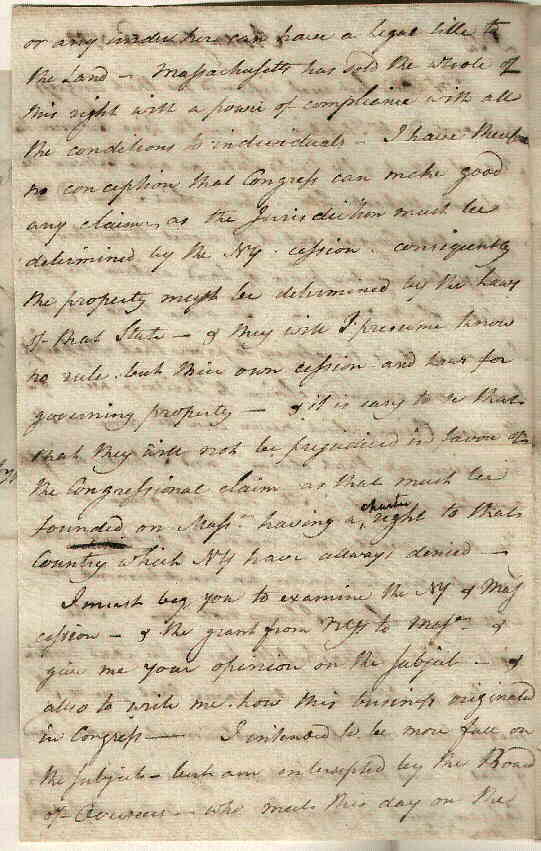 or any under her can have a legal title to
the Land — Massachusetts has sold the whole of
this right with a power of compliance with all
the conditions to individuals — I have therefore
no conception that Congress can make good
any claim, as the Jurisdiction must be
determined by the NY. cession. consequently
the property must be determined by the Laws
of that State — & they will I presume know
no rule but their own cession and Laws for
governing property — & it is easy to se that
that they will not be prejudiced in favor of
the Congressional claim as that must be
founded on Massts. having a charter right to that
Country which NY have always denied —
I must beg you to examine the NY & Mass
cession — & the grant from NY to Massts. &
give me your opinion on the subject — &
also to write me how this business originated
in Congress — I intended to be more full on
the subject — but am interupted by the Board
of Overseers — who meet this day on the